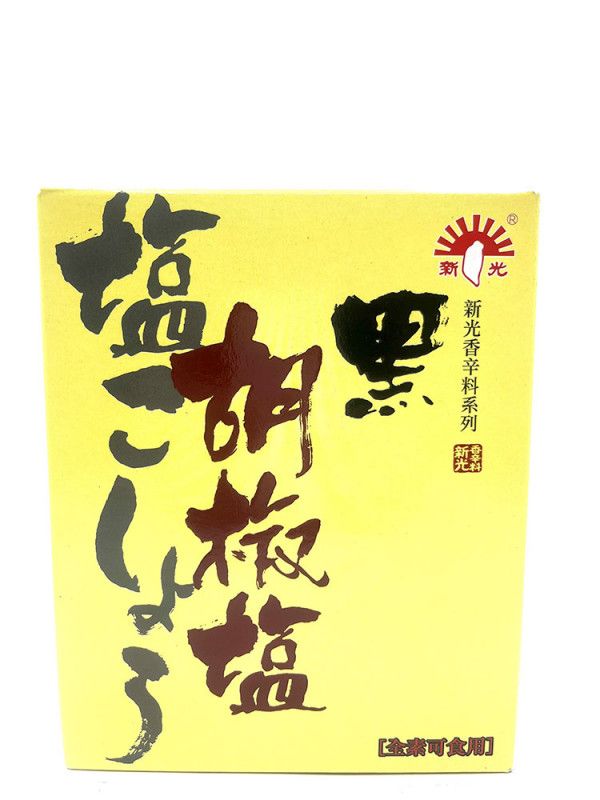 新光
®
新光香辛料系列
新光
香辛料
黑
胡椒塩
塩こしょう
[全素可食用]